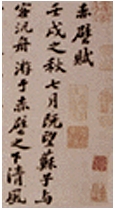 赤壁賦
壬戌之秋七月既望蘇子与
客泛舟游于赤壁之下清風